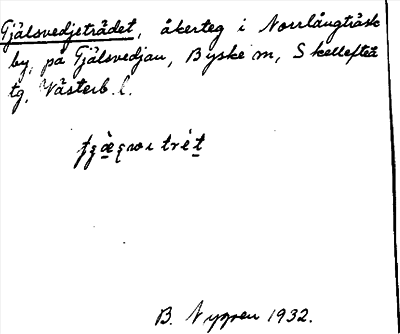 Gjälsvedjeträdet, åkerteg i Norrlångträsk
by, på Gjälsvedjan, Byske sn, Skellefteå
tg, Västerb. l.
B. Nygren 1932.